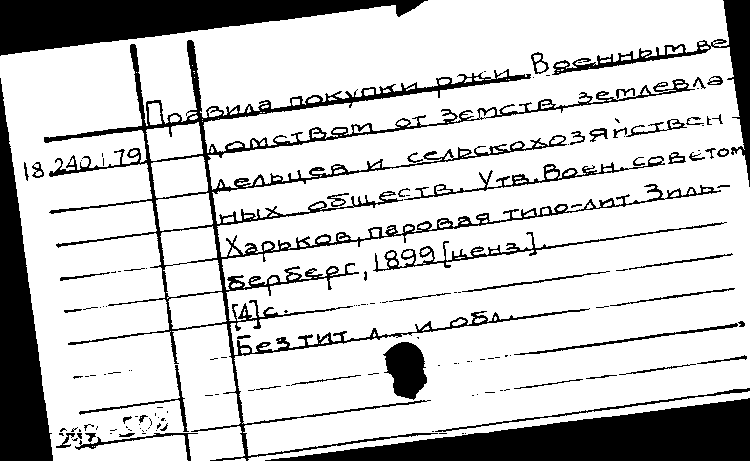 Правила покупки ржи Военным ве-
домством от земств, землевла-
18.240.1.79
дельцев и сельскохозяйствен-
ных обществ. Утв. Воен. советом
Харьков, паровая типо-лит. Зиль-
берберг, 1899 [ценз.].
[4] с.
Без тит. л. и обл.